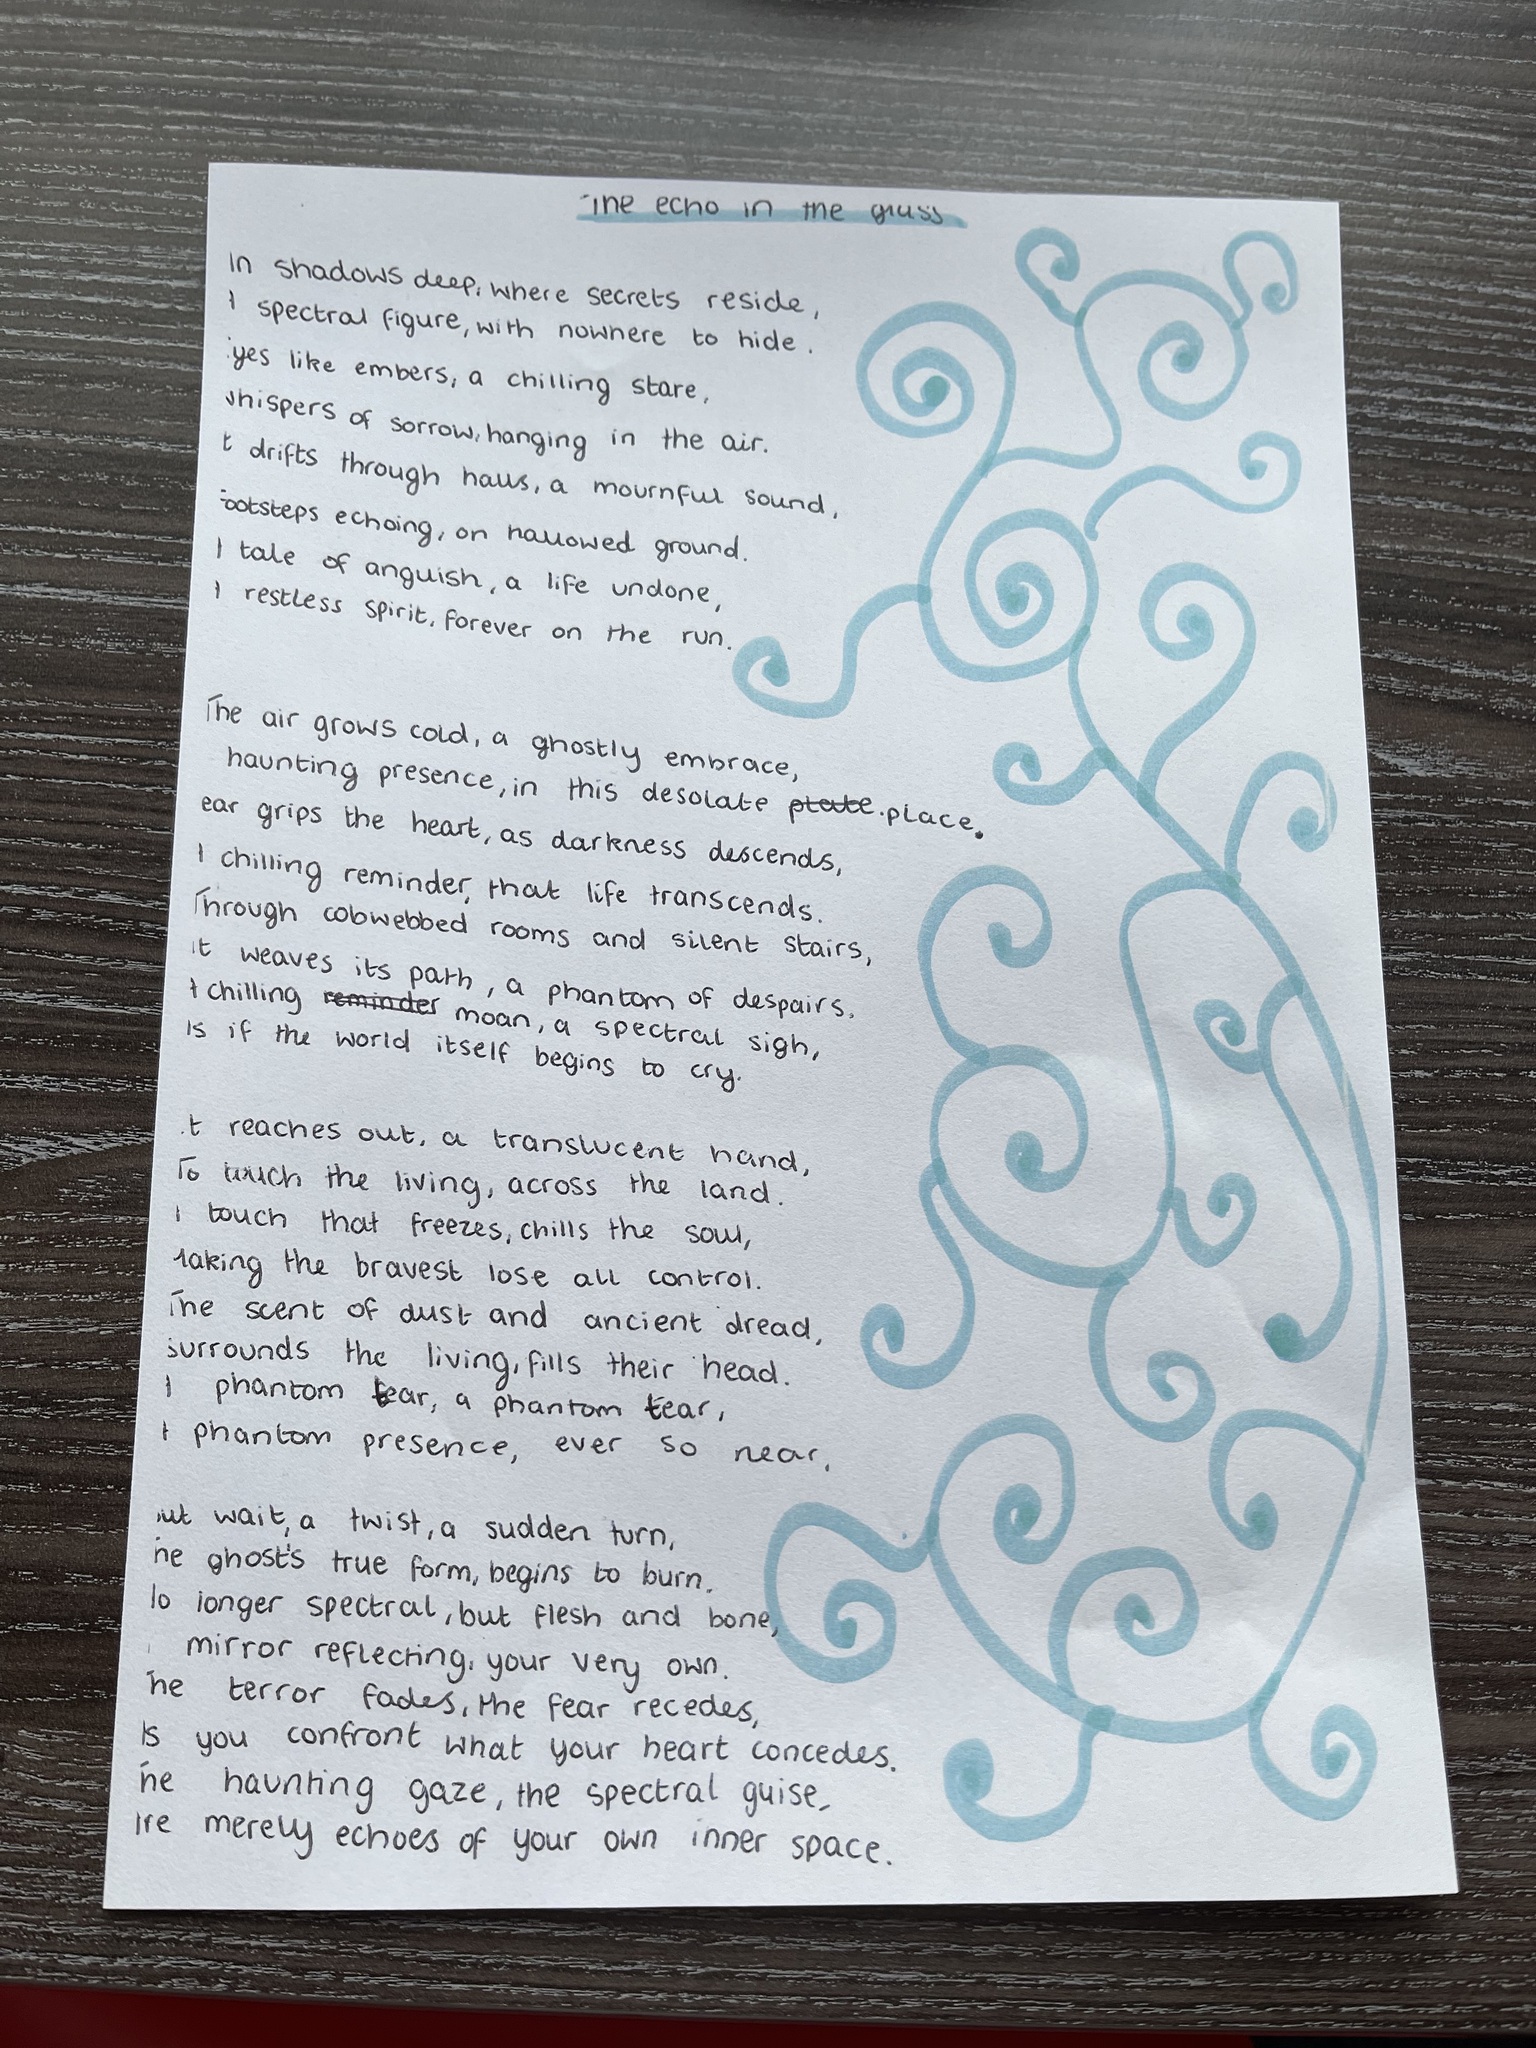 The echo in the glass
In shadows deep, where secrets reside,
A spectral figure, with nowhere to hide.
Eyes like embers, a chilling stare,
Whispers of sorrow, hanging in the air.
It drifts through halls, a mournful sound,
Footsteps echoing, on hallowed ground.
A tale of anguish, a life undone,
A restless spirit, forever on the run.
The air grows cold, a ghostly embrace,
haunting presence, in this desolate place.
ear grips the heart, as darkness descends,
A chilling reminder, that life transcends.
Through cobwebbed rooms and silent stairs,
It weaves its path, a phantom of despairs.
A chilling reminder moan, a spectral sigh,
As if the world itself begins to cry.
It reaches out, a translucent hand,
To touch the living, across the land.
A touch that freezes, chills the soul,
Making the bravest lose all control.
The scent of dust and ancient dread,
Surrounds the living, fills their head.
A phantom fear, a phantom tear,
A phantom presence, ever so near.
But wait, a twist, a sudden turn,
The ghost's true form, begins to burn.
No longer spectral, but flesh and bone,
mirror reflecting, your very own.
The terror fades, the fear recedes,
As you confront what your heart concedes.
The haunting gaze, the spectral guise,
Are merely echoes of your own inner space.